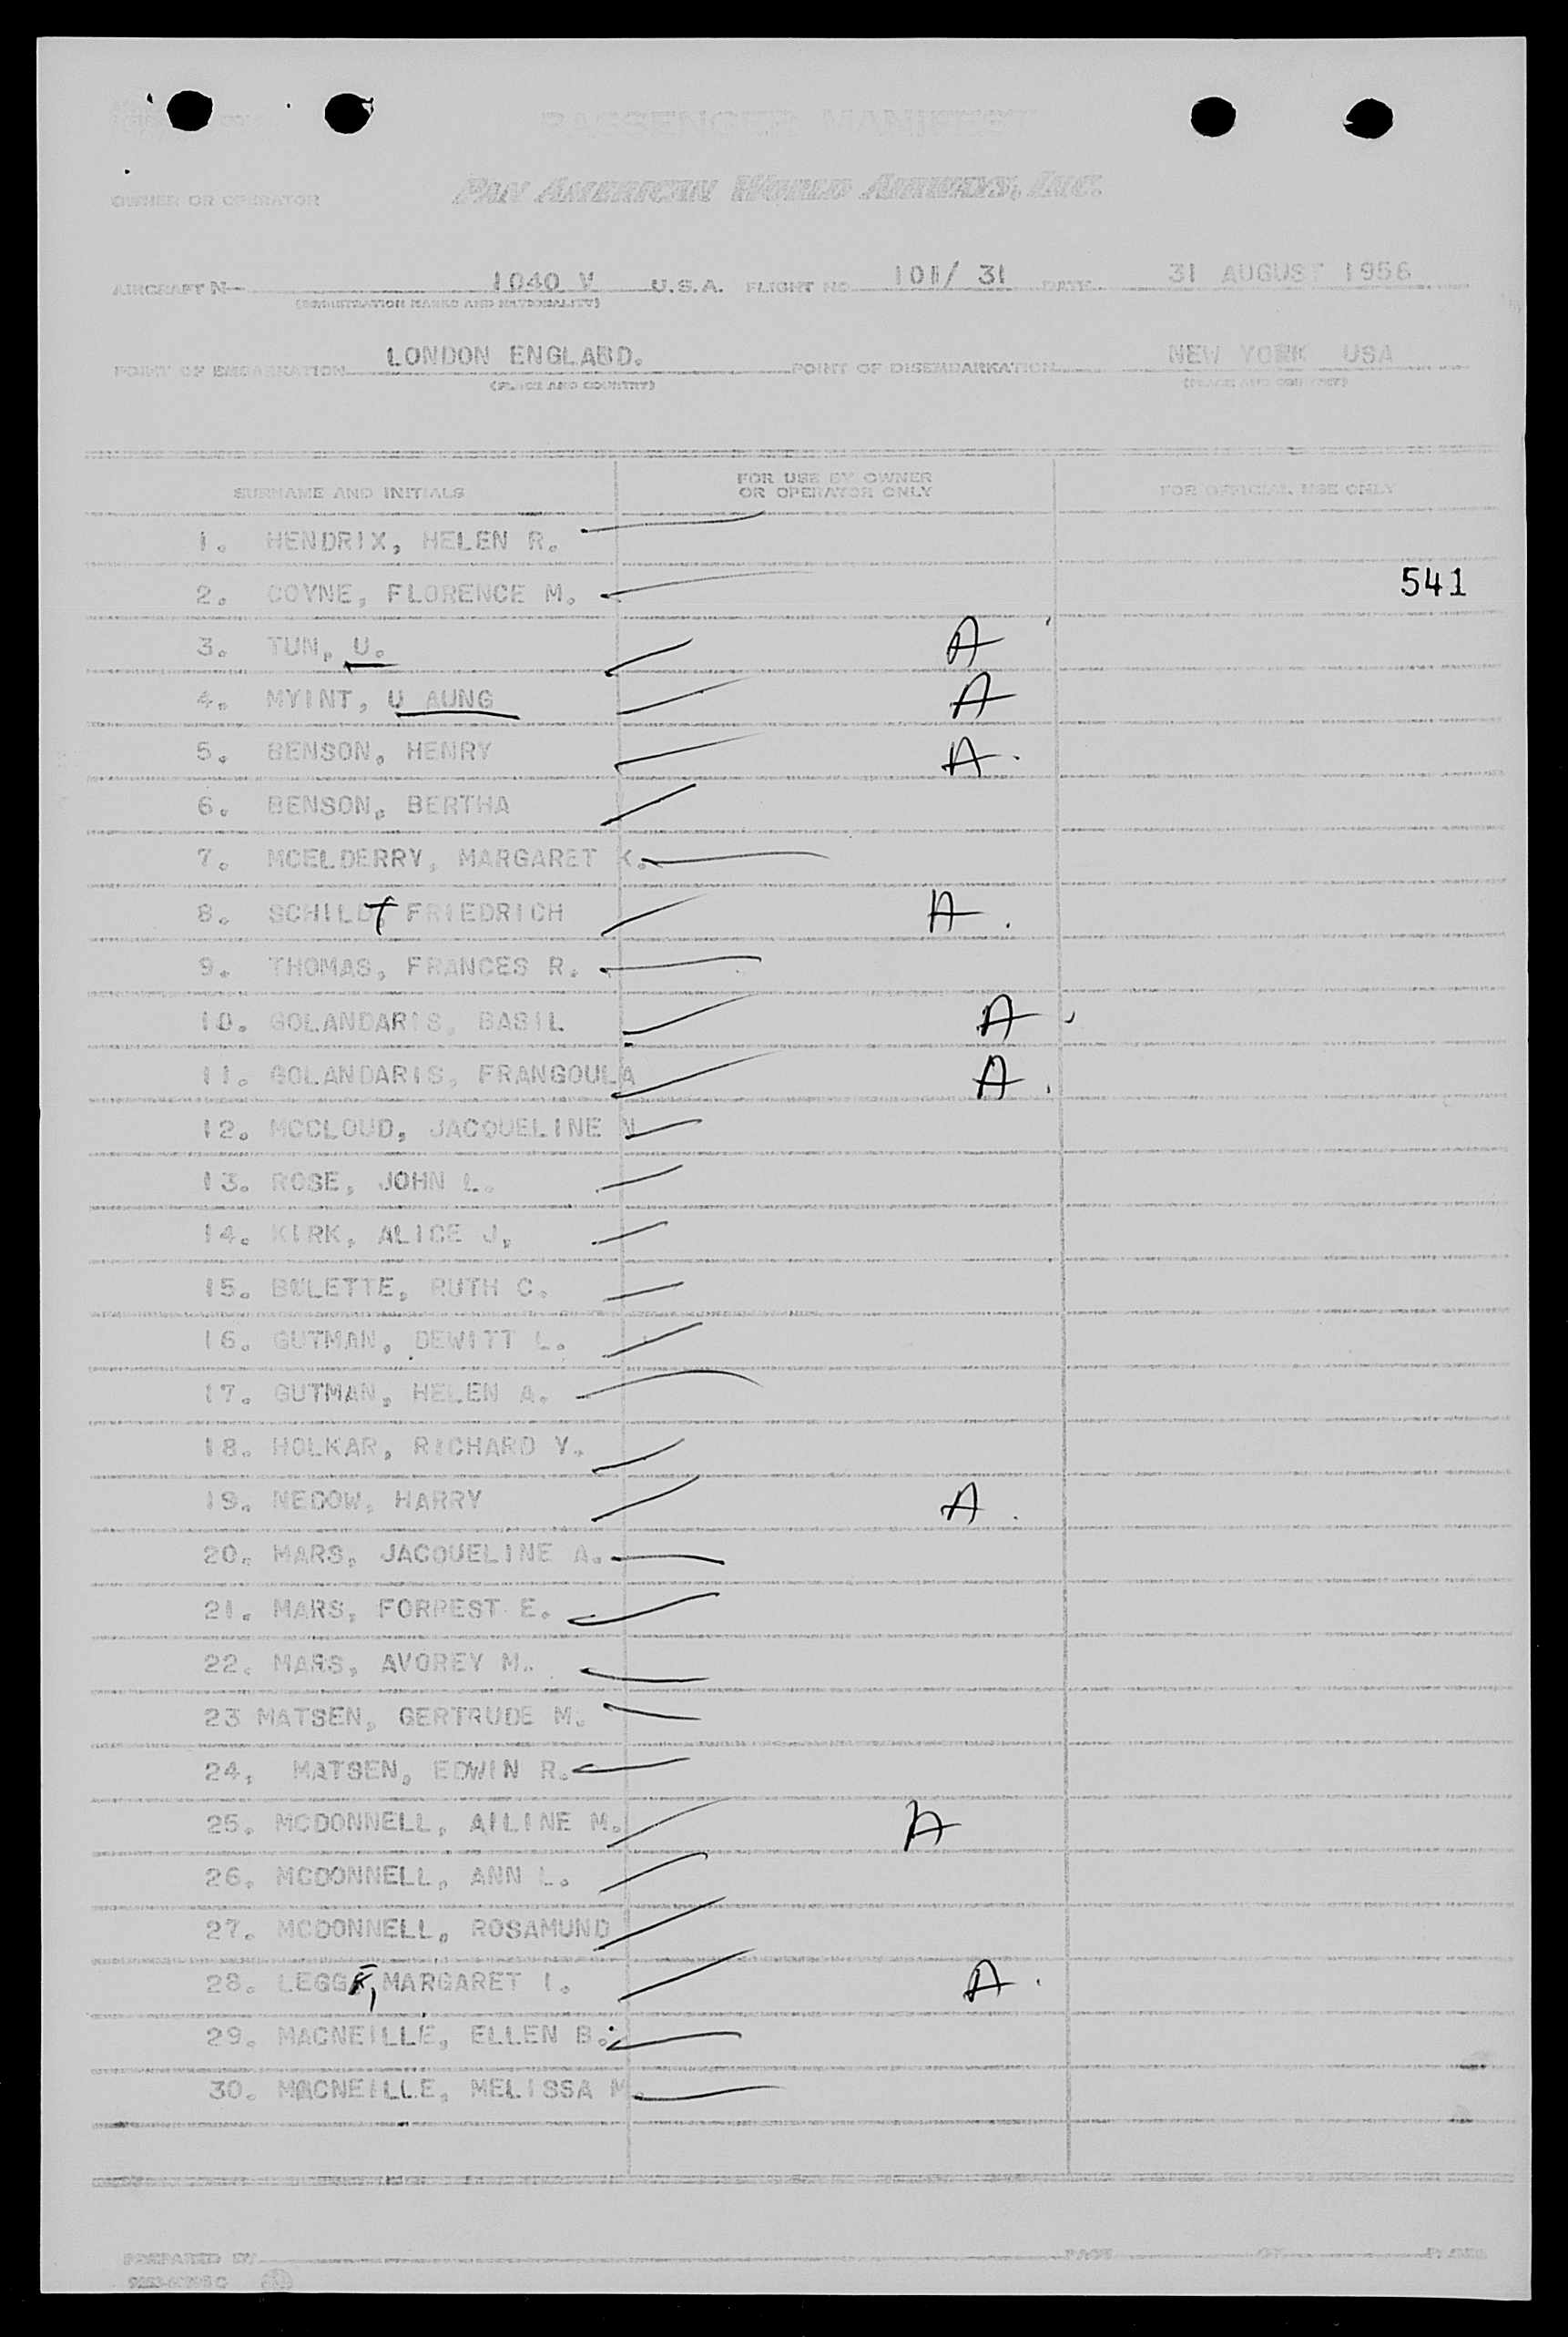 PASSENGER MANIFEST
OWNER OR OPERATOR PAN AMERICAN WORLD AIRWAYS, INC.
AIRCRAFT N- 1040 V U.S.A. FLIGHT NO 101/ 31 DATE 31 AUGUST 1956
(REGISTRATION MARKS AND NATIONALITY)
POINT OF EMBARKATION LONDON ENGLAND. POINT OF DISEMBARKATION NEW YORK USA
(PLACE AND COUNTRY) (PLACE AND COUNTRY)
SURNAME AND INITIALS FOR USE BY OWNER OR OPERATOR ONLY FOR OFFICIAL USE ONLY
1. HENDRIX, HELEN R.
2. COYNE, FLORENCE M. 541
3. TUN, U. A
4. MYINT, U AUNG A
5. BENSON, HENRY A
6. BENSON, BERTHA
7. MCELDERRY, MARGARET K.
8. SCHILDT FRIEDRICH A
9. THOMAS, FRANCES R.
10. GOLANDARIS, BASIL A
11. GOLANDARIS, FRANGOULA A
12. MCCLOUD, JACQUELINE N
13. ROSE, JOHN L.
14. KIRK, ALICE J.
15. BULETTE, RUTH C.
16. GUTMAN, DEWITT L.
17. GUTMAN, HELEN A.
18. HOLKAR, RICHARD Y.
19. NEDOW, HARRY A
20. MARS, JACQUELINE A.
21. MARS, FORREST E.
22. MARS, AVOREY M.
23 MATSEN, GERTRUDE M.
24, MATSEN, EDWIN R.
25. MCDONNELL, AILINE M. A
26. MCDONNELL, ANN L.
27. MCDONNELL, ROSAMUND
28. LEGGE, MARGARET I. A
29. MACNEILLE, ELLEN B.
30. MACNEILLE, MELISSA M.
PREPARED BY PAGE OF PAGES